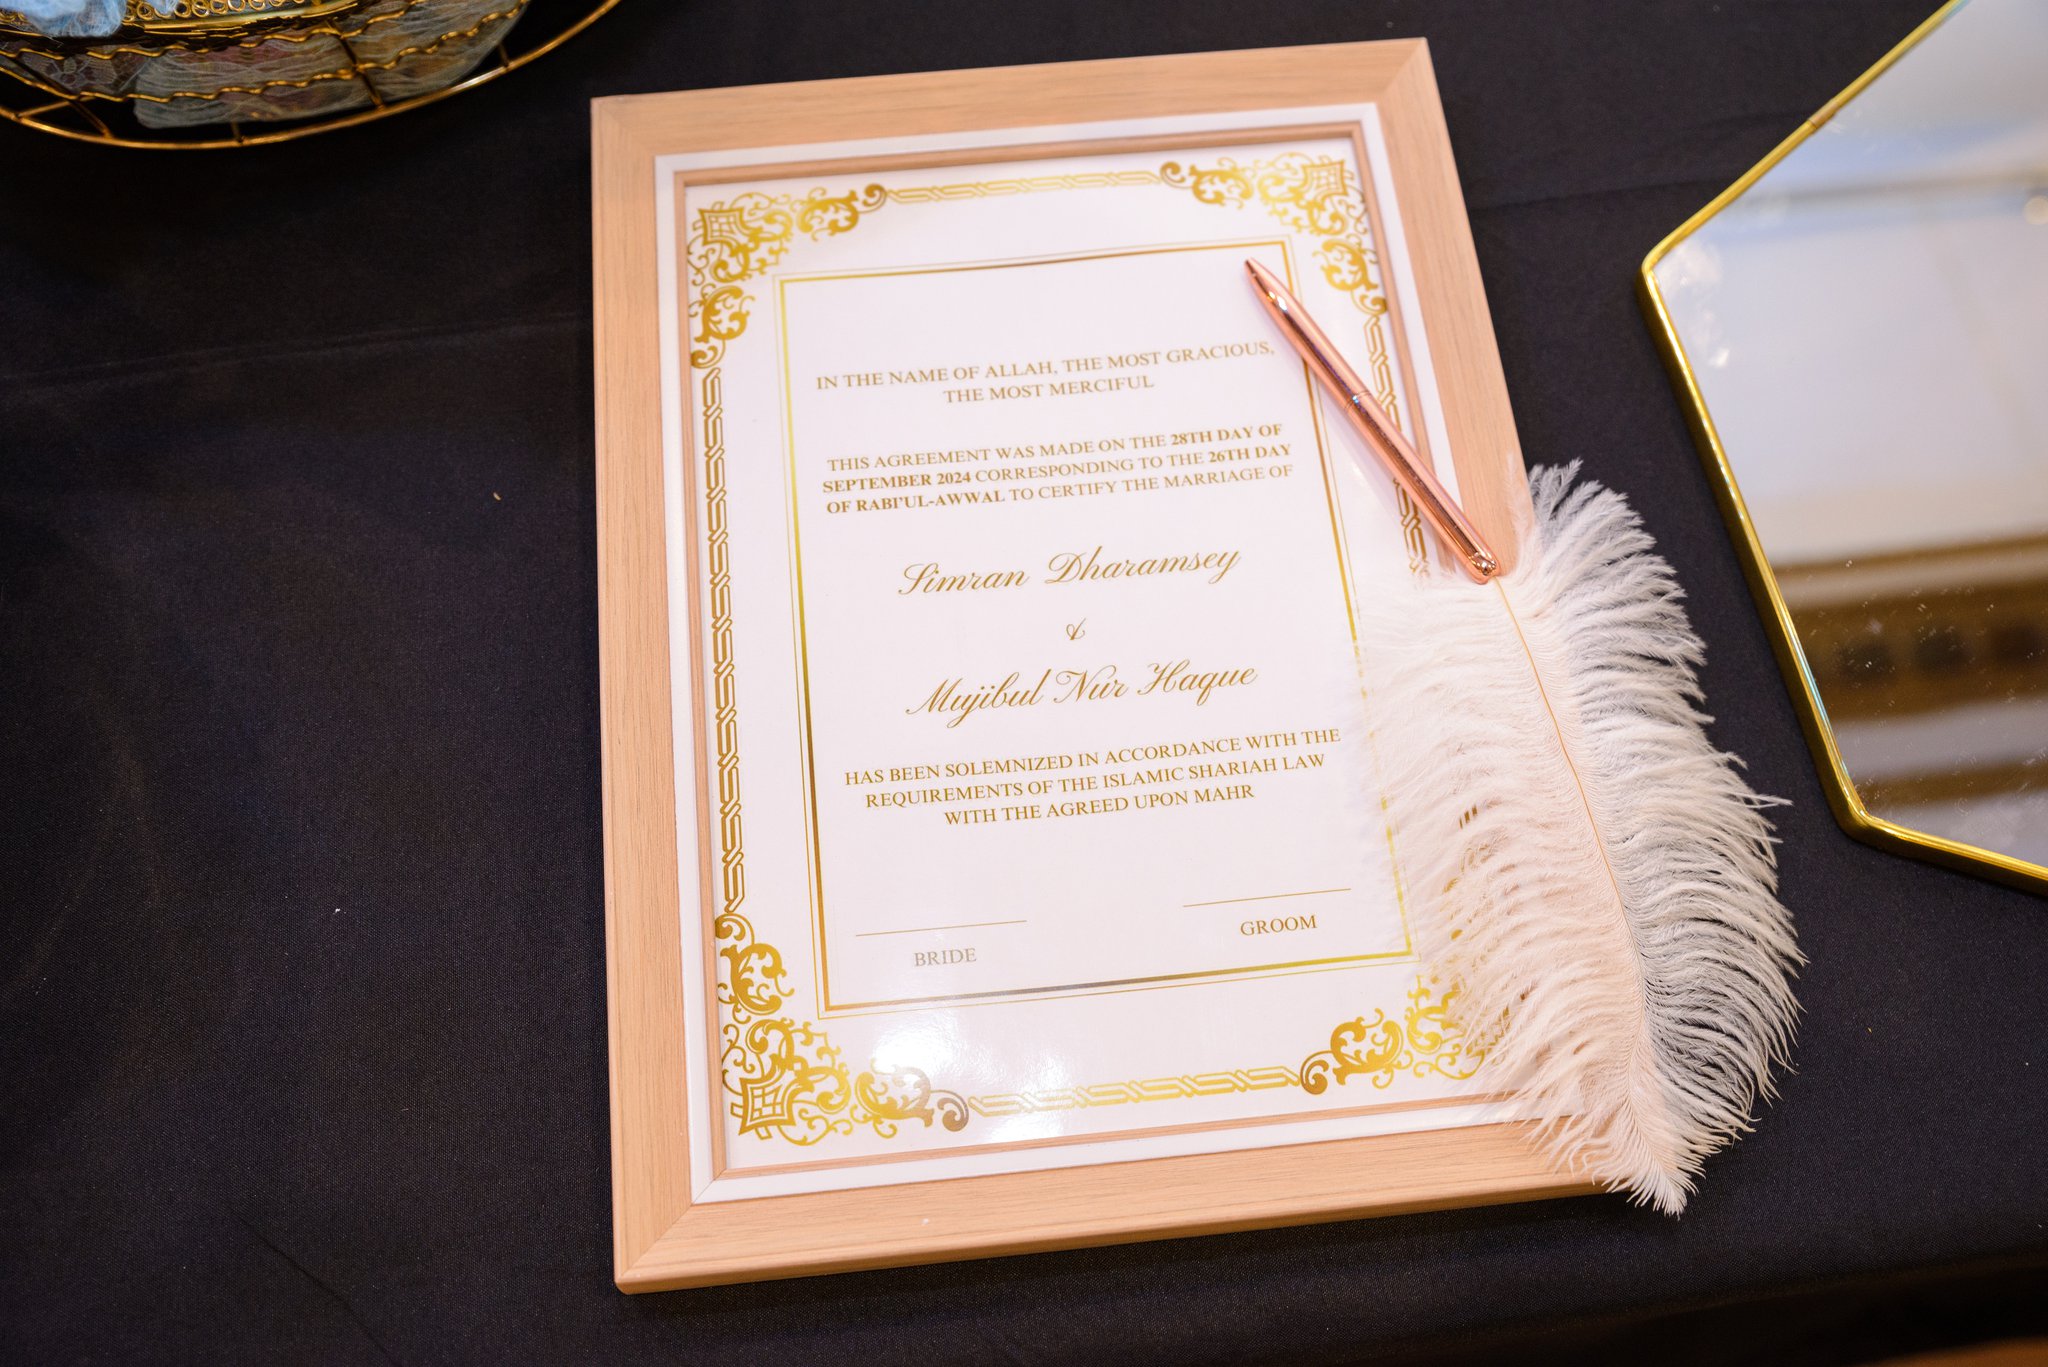 IN THE NAME OF ALLAH, THE MOST GRACIOUS,
THE MOST MERCIFUL
THIS AGREEMENT WAS MADE ON THE 28TH DAY OF
SEPTEMBER 2024 CORRESPONDING TO THE 26TH DAY
OF RABI'UL-AWWAL TO CERTIFY THE MARRIAGE OF
Simran Dharamsey
&
Mujibul Nur Haque
HAS BEEN SOLEMNIZED IN ACCORDANCE WITH THE
REQUIREMENTS OF THE ISLAMIC SHARIAH LAW
WITH THE AGREED UPON MAHR
BRIDE
GROOM